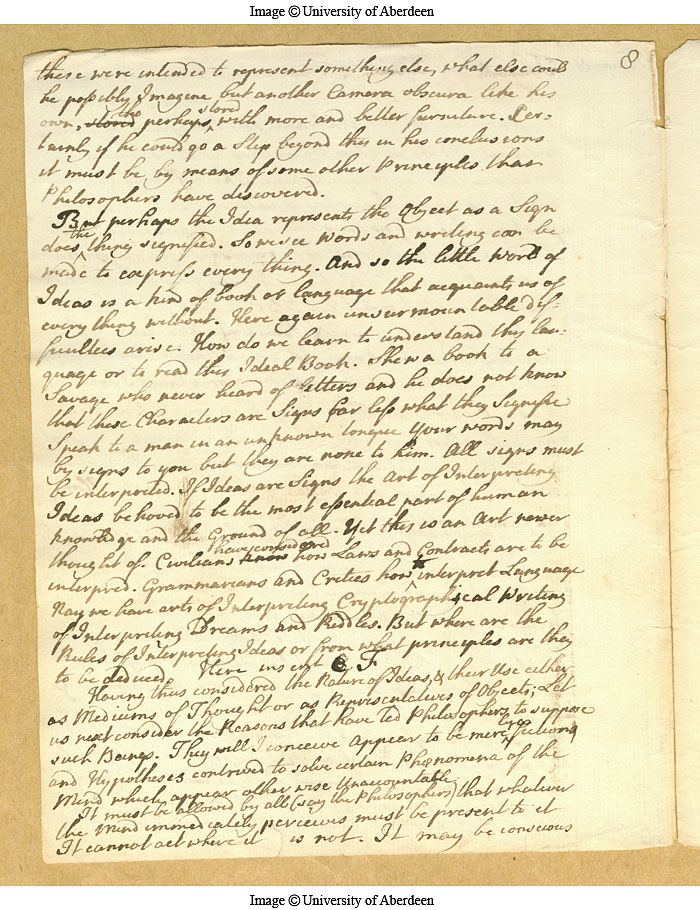 Image © University of Aberdeen
8
these were intended to represent something else, what else could
he possibly Imagine but another Camera obscura like his
own, stored the perhaps stord with more and better furniture. Cer-
tainly if he could go a Step beyond this in his conclusions
it must be by means of some other Principles than
Philosophers have discovered.
But perhaps the Idea represents the Object as a Sign
does the thing signified. So we see Words and writing can be
made to express every thing. And so the little World of
Ideas is a kind of book or language that acquaints us of
every thing without. Here again unsurmountable dif-
ficulties arise. How do we learn to understand this lan-
guage or to read this Ideal Book. Shew a book to a
Savage who never heard of letters and he does not know
that these Characters are Signs far less what they Signifie
Speak to a man in an unknown tongue Your words may
be signs to you but they are none to him. All signs must
be interpreted. If Ideas are Signs the Art of Interpreting
Ideas behoved to be the most essential part of human
knowledge and the Ground of all. Yet this is an Art never
thought of. Civilians know have considered how Laws and Contracts are to be
interpred. Grammarians and Criticks how interpret Language
Nay we have arts of Interpreting Cryptographical Writing
of Interpreting Dreams and Riddles. But where are the
Rules of Interpreting Ideas or from what principles are they
to be deduced. Here insert F
Having thus considered the Nature of Ideas, & their Use either
as Mediums of Thought or as Representatives of Objects; Let
us next consider the Reasons that have led Philosophers, to suppose
such Beings. They will I conceive appear to be mere fictions
and Hypotheses contrived to solve certain Phænomena of the
Mind which appear other wise Unaccountable
It must be allowed by all (say the Philosophers) that whatever
the Mind immediately perceives must be present to it
It cannot act where it is not. It may be conscious
Image © University of Aberdeen